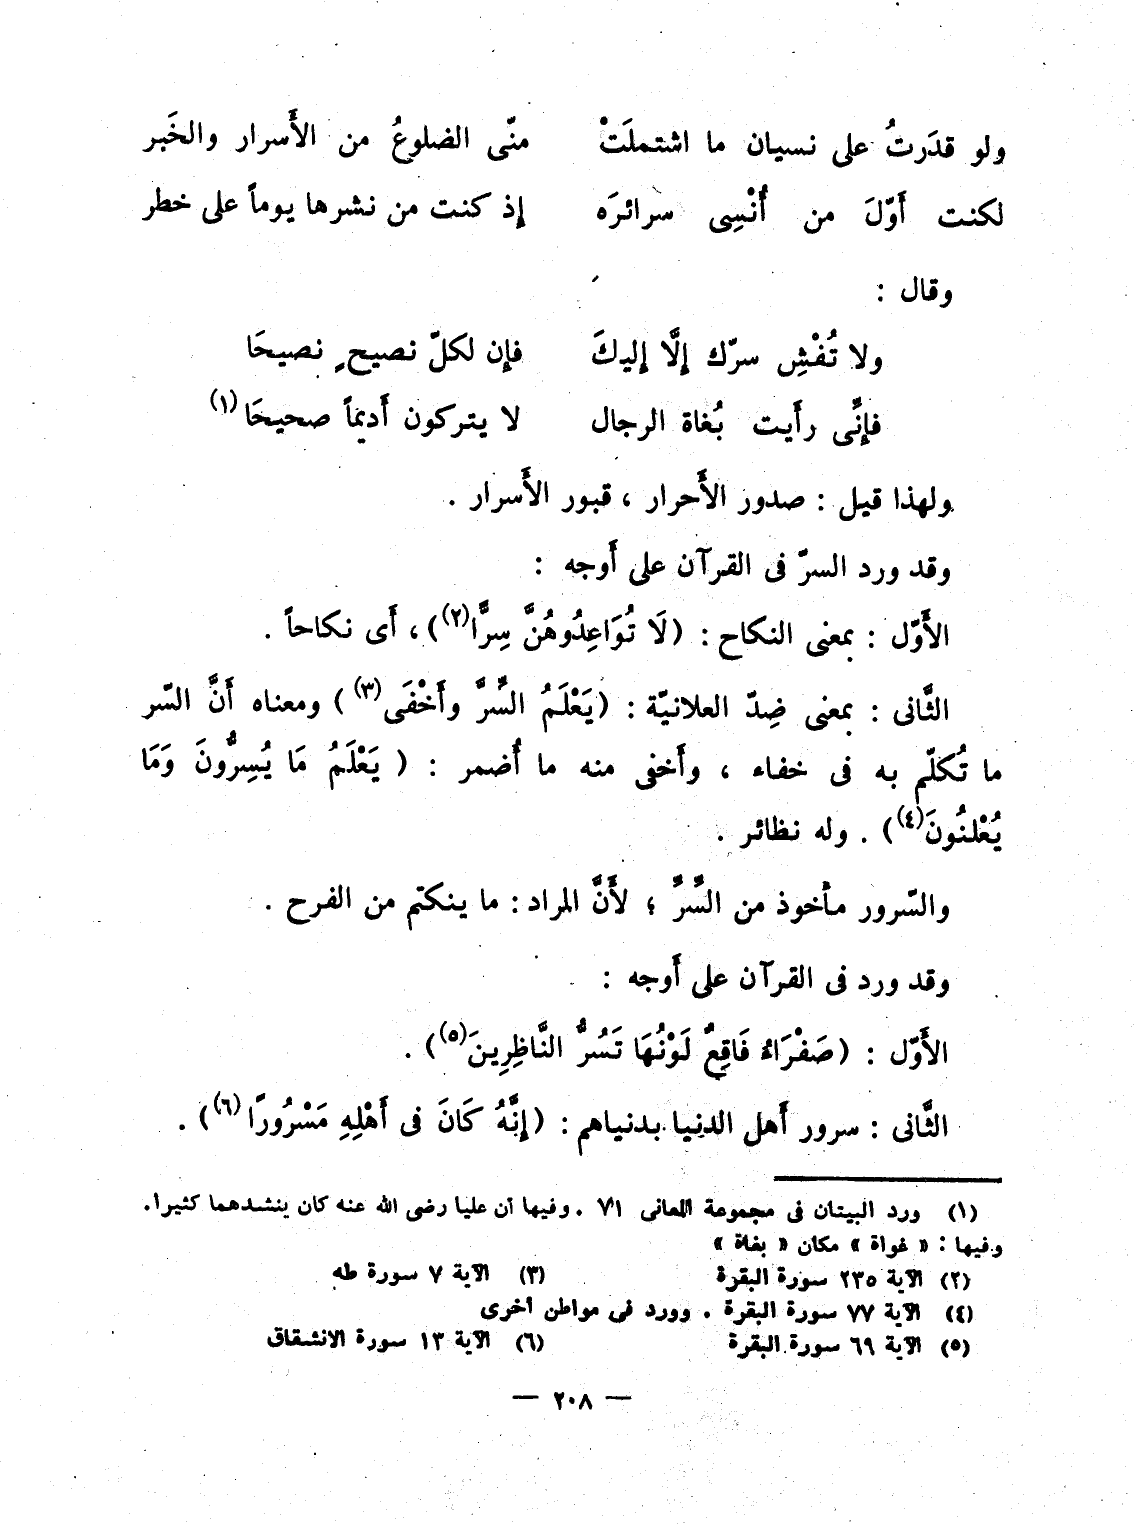 ولو قدَرتُ على نسيان ما اشتملَتْ منّى الضلوعُ من الأَسرار والخَبر
لكنت أَوّلَ من أُنْسِى سرائرَه إِذ كنت من نشرها يوماً على خطر
وقال :
ولا تُفْشِ سرّك إِلَّا إِليكَ فإِن لكلّ نصيح نصيحَا
فإِنِّى رأَيت بُغاة الرجال لا يتركون أَديماً صحيحَا (١)
ولهذا قيل : صدور الأَحرار ، قبور الأَسرار .
وقد ورد السرّ فى القرآن على أَوجه :
الأَوّل : بمعنى النكاح : (لَا تُوَاعِدُوهُنَّ سِرًّا(٢)) ، أَى نكاحاً .
الثَّانى : بمعنى ضِدّ العلانيّة : (يَعْلَمُ السِّرَّ وأَخْفَى(٣)) ومعناه أَنَّ السّر
ما تُكلّم به فى خفاء ، وأَخفى منه ما أُضمر : ( يَعْلَمُ مَا يُسِرُّونَ وَمَا
يُعْلنُونَ(٤)) . وله نظائر .
والسّرور مأخوذ من السِّرِّ ؛ لأَنَّ المراد : ما ينكتم من الفرح .
وقد ورد فى القرآن على أَوجه :
الأَوّل : (صَفْرَاءُ فَاقِعٌ لَوْنُهَا تَسُرُّ النَّاظِرِينَ(٥)) .
الثَّانى : سرور أَهل الدنيا بدنياهم : (إِنَّهُ كَانَ فى أَهْلِهِ مَسْرُورًا (٦)) .
(١) ورد البيتان فى مجموعة المعانى ٧١ . وفيها أن عليا رضى الله عنه كان ينشدهما كثيرا.
وفيها : « غواة » مكان « بغاة »
(٢) الآية ٢٣٥ سورة البقرة (٣) الآية ٧ سورة طه
(٤) الآية ٧٧ سورة البقرة . وورد فى مواطن أخرى
(٥) الآية ٦٩ سورة البقرة (٦) الآية ١٣ سورة الانشقاق
— ٢٠٨ —